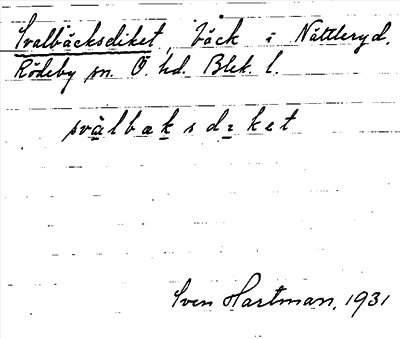 Svalbäcksdiket, bäck i Nättleryd.
Rödeby sn. Ö. hd. Blek. l.
svàlbaksdiket
Sven Hartman, 1931